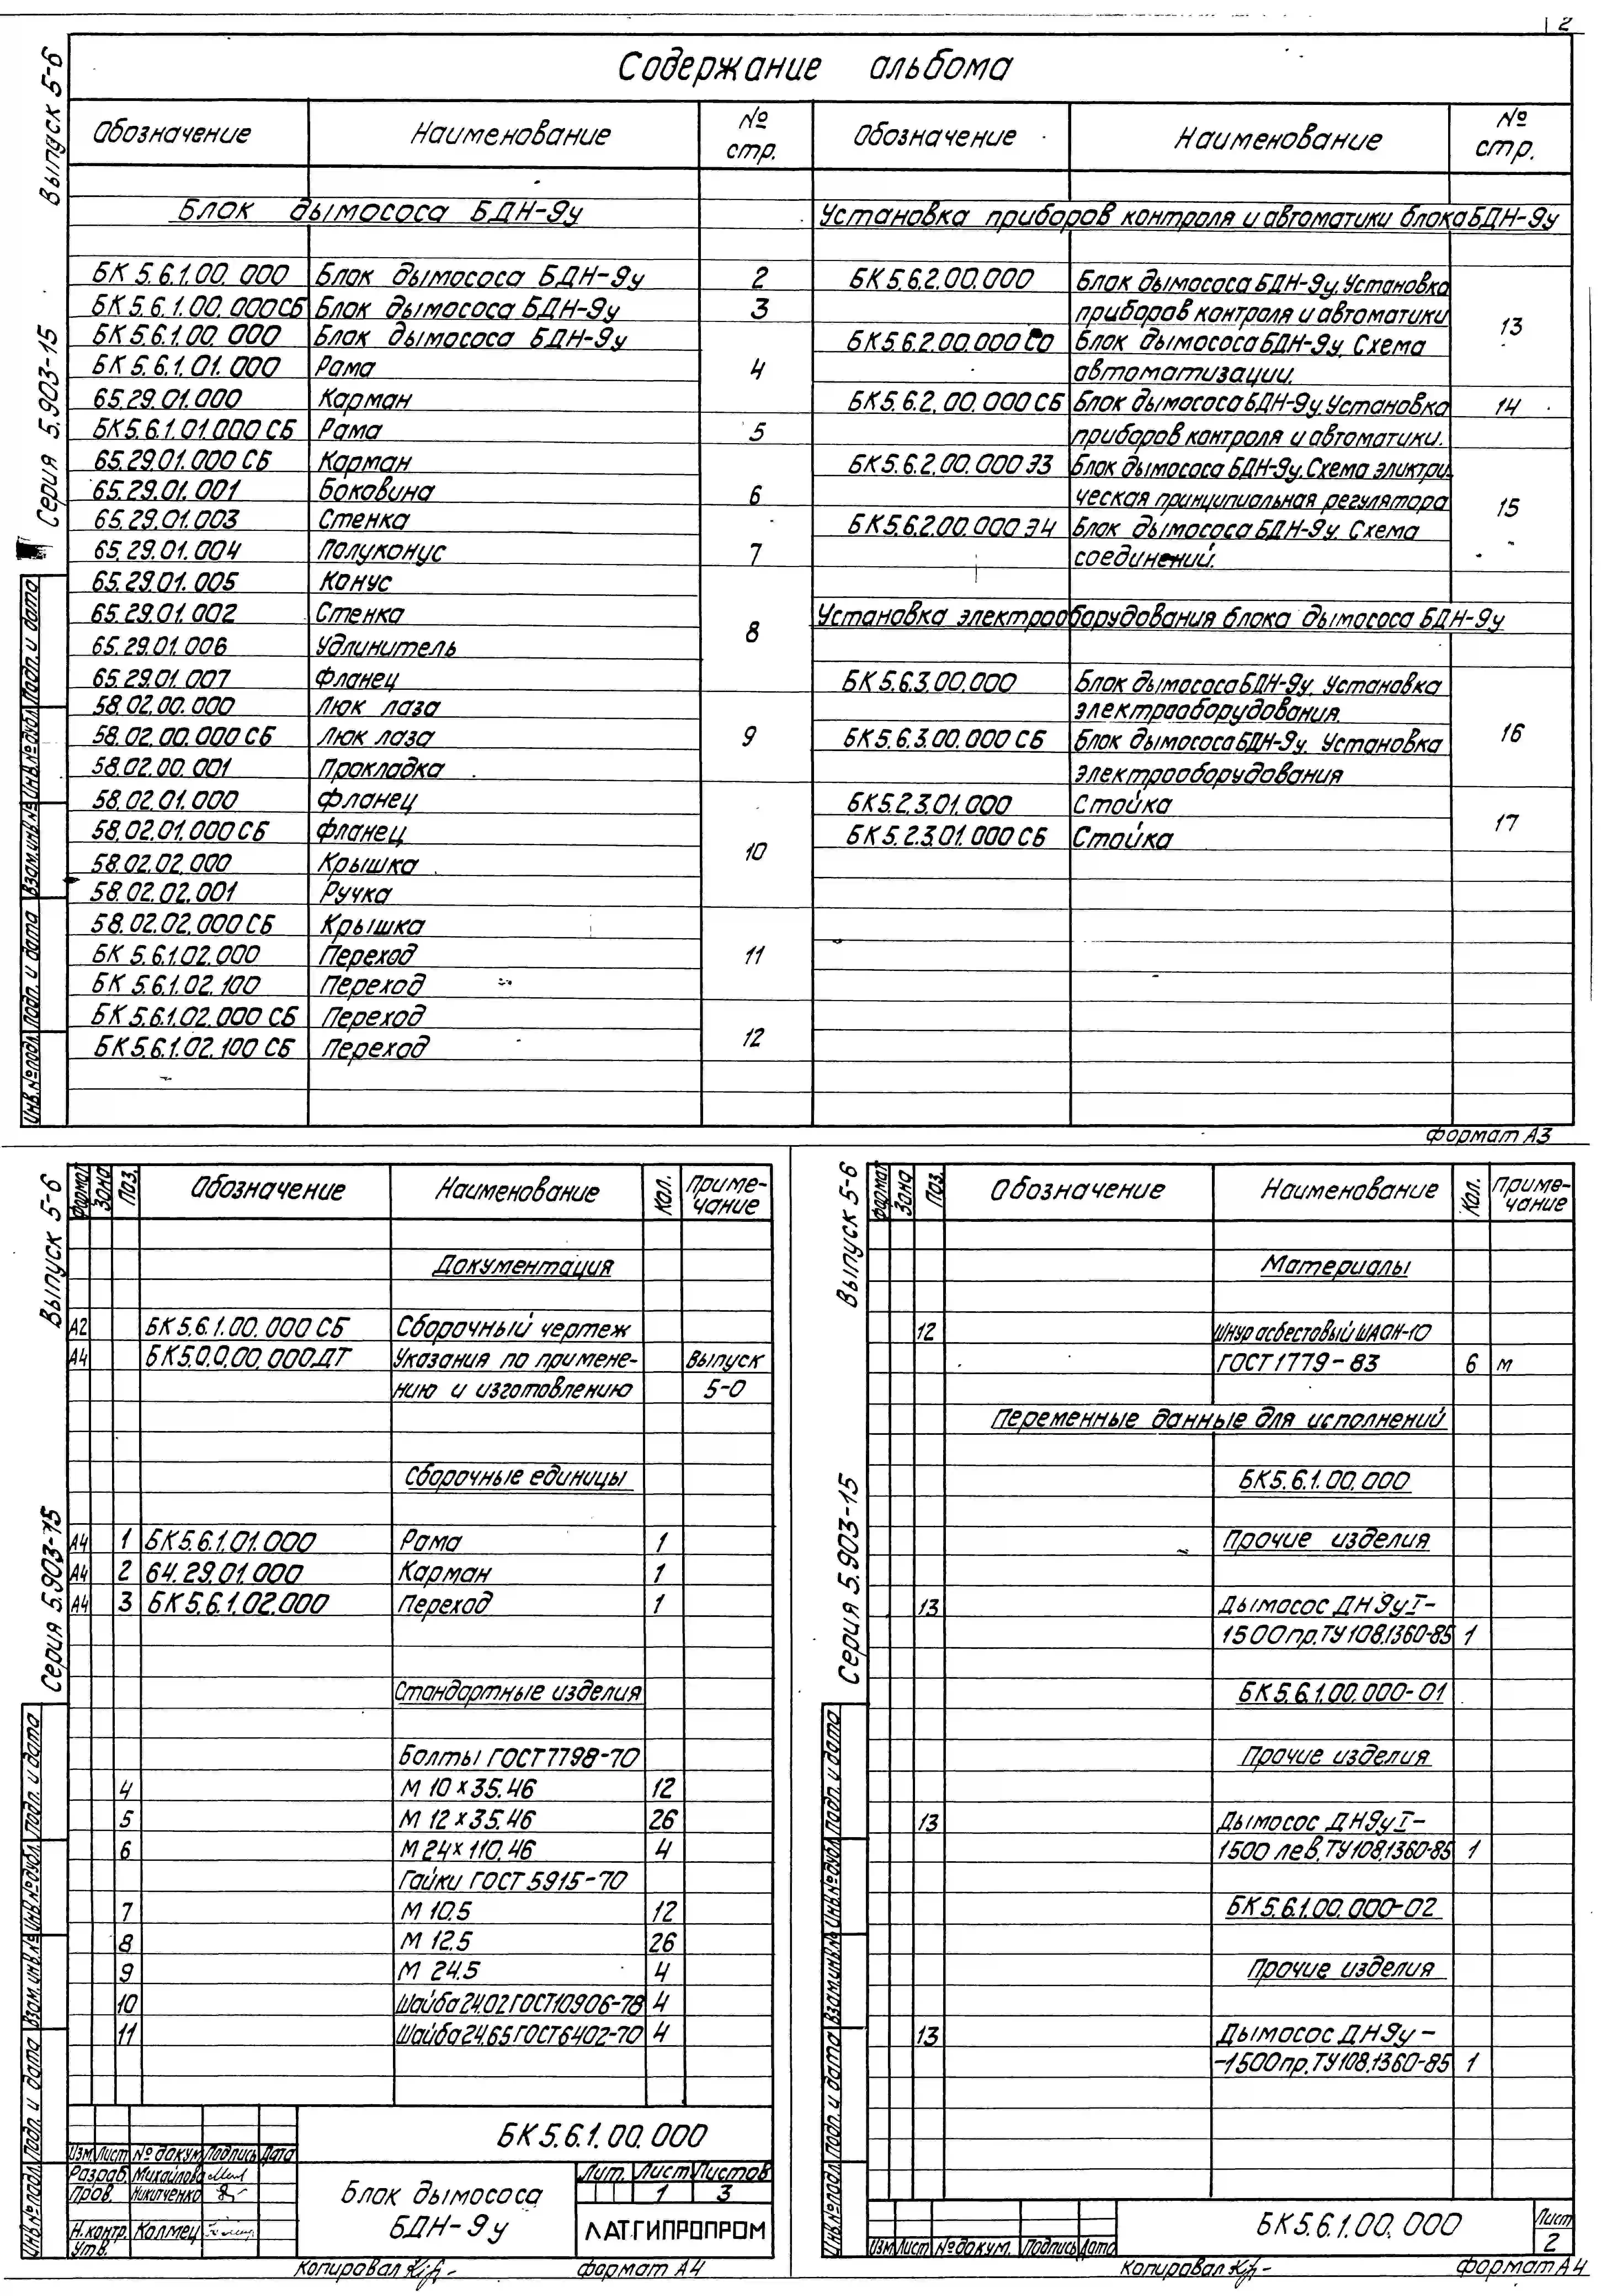 2
Содержание альбома
Выпуск 5-6
Серия 5.903-15
Обозначение Наименование № стр. Обозначение Наименование № стр.
Блок дымососа БДН-9у
БК 5.6.1.00.000 Блок дымососа БДН-9у 2
БК 5.6.1.00.000СБ Блок дымососа БДН-9у 3
БК 5.6.1.00.000 Блок дымососа БДН-9у
БК 5.6.1.01.000 Рама 4
65.29.01.000 Карман
БК5.6.1.01.000 СБ Рама 5
65.29.01.000 СБ Карман
65.29.01.001 Боковина 6
65.29.01.003 Стенка
65.29.01.004 Полуконус 7
65.29.01.005 Конус
65.29.01.002 Стенка 8
65.29.01.006 Удлинитель
65.29.01.007 Фланец
58.02.00.000 Люк лаза
58.02.00.000 СБ Люк лаза 9
58.02.00.001 Прокладка
58.02.01.000 Фланец
58.02.01.000 СБ Фланец 10
58.02.02.000 Крышка
58.02.02.001 Ручка
58.02.02.000 СБ Крышка
БК 5.6.1.02.000 Переход 11
БК 5.6.1.02.100 Переход
БК 5.6.1.02.000 СБ Переход 12
БК 5.6.1.02.100 СБ Переход
Установка приборов контроля и автоматики блока БДН-9у
БК 5.6.2.00.000 Блок дымососа БДН-9у. Установка
приборов контроля и автоматики 13
БК5.6.2.00.000 СО Блок дымососа БДН-9у. Схема
автоматизации.
БК5.6.2.00.000 СБ Блок дымососа БДН-9у. Установка 14
приборов контроля и автоматики.
БК5.6.2.00.000 Э3 Блок дымососа БДН-9у. Схема эликтри-
ческая принципиальная регулятора 15
БК5.6.2.00.000 Э4 Блок дымососа БДН-9у. Схема
соединений.
Установка электрооборудования блока дымососа БДН-9у
БК 5.6.3.00.000 Блок дымососа БДН-9у. Установка
электрооборудования. 16
БК 5.6.3.00.000 СБ Блок дымососа БДН-9у. Установка
электрооборудования
БК5.2.3.01.000 Стойка 17
БК 5.2.3.01.000 СБ Стойка
Инв.№подл. Подп. и дата Взам.инв.№ Инв.№дубл. Подп. и дата
Формат А3
Выпуск 5-6
Серия 5.903-15
Формат Зона Поз. Обозначение Наименование Кол. Приме-
чание
Документация
А2 БК5.6.1.00.000 СБ Сборочный чертеж
А4 БК5.0.0.00.000ДТ Указания по примене- Выпуск
нию и изготовлению 5-0
Сборочные единицы
А4 1 БК5.6.1.01.000 Рама 1
А4 2 64.29.01.000 Карман 1
А4 3 БК5.6.1.02.000 Переход 1
Стандартные изделия
Болты ГОСТ7798-70
4 М 10×35.46 12
5 М 12×35.46 26
6 М24×110.46 4
Гайки ГОСТ 5915-70
7 М 10.5 12
8 М 12.5 26
9 М 24.5 4
10 Шайба 24.02 ГОСТ10906-78 4
11 Шайба 24.65 ГОСТ6402-70 4
Инв.№подл. Подп. и дата Взам.инв.№ Инв.№дубл. Подп. и дата
БК5.6.1.00.000
Изм. Лист № докум. Подпись Дата
Разраб. Михайлова
Пров. Никитченко
Н.контр. Калмец
Утв.
Блок дымососа
БДН-9у
Лит. Лист Листов
1 3
ЛАТГИПРОПРОМ
Копировал Формат А4
Выпуск 5-6
Серия 5.903-15
Формат Зона Поз. Обозначение Наименование Кол. Приме-
чание
Материалы
12 Шнур асбестовый ШАОН-10
ГОСТ1779-83 6 м
Переменные данные для исполнений
БК5.6.1.00.000
Прочие изделия
13 Дымосос ДН9уI-
1500пр.ТУ108.1360-85 1
БК5.6.1.00.000-01
Прочие изделия
13 Дымосос ДН9уI-
1500 лев.ТУ108.1360-85 1
БК5.6.1.00.000-02
Прочие изделия
13 Дымосос ДН9у-
-1500пр.ТУ108.1360-85 1
Инв.№подл. Подп. и дата Взам.инв.№ Инв.№дубл. Подп. и дата
Изм. Лист № докум. Подпись Дата
БК5.6.1.00.000
Лист
2
Копировал Формат А4